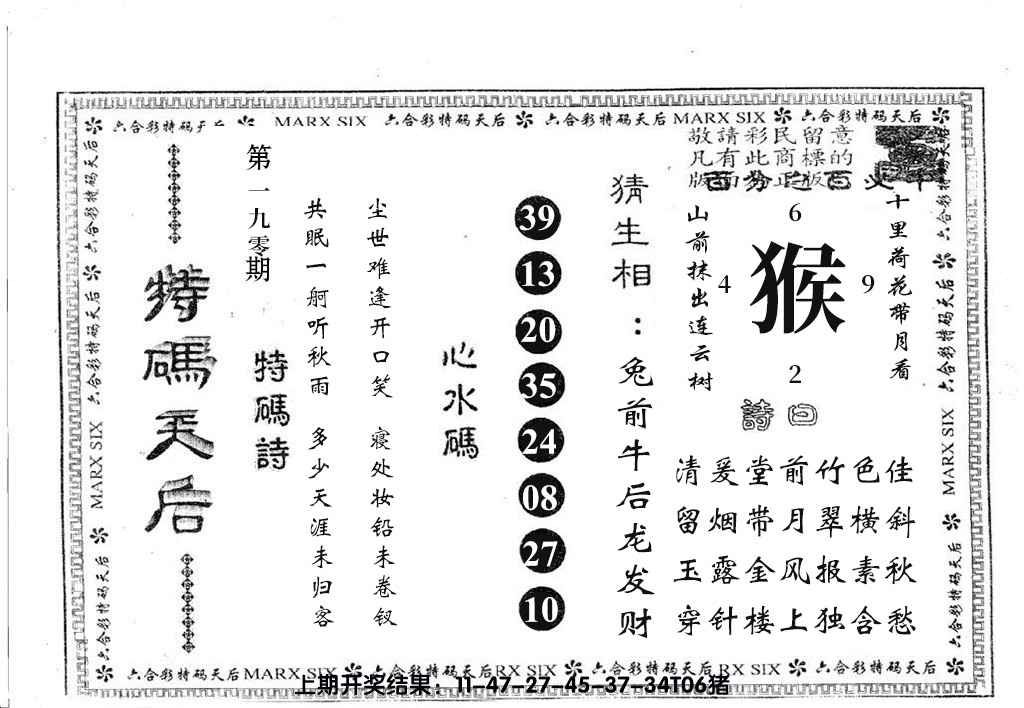 六合彩特码天后 MARX SIX 六合彩特码天后 六合彩特码天后 MARX SIX 六合彩特码天后
敬請彩民留意
凡有此商標的
版面为正版
百分之百必中
十里荷花带月看
山前抹出连云树
6
4 猴 9
2
詩曰
佳斜秋愁
色横素含
竹翠报独
前月风上
堂带金楼
爰烟露针
清留玉穿
猜生相：兔前牛后龙发财
39
13
20
35
24
08
27
10
心水碼
尘世难逢开口笑 寝处妆铅未卷钗
共眠一舸听秋雨 多少天涯未归客
特碼詩
第一九零期
特碼天后
六合彩特码天后 六合彩特码天后 MARX SIX 六合彩特码天后
六合彩特码天后 六合彩特码天后 MARX SIX 六合彩特码天后
六合彩特码天后 MARX SIX 六合彩特码天后 RX SIX 六合彩特码天后 RX SIX 六合彩特码天后
上期开奖结果：11-47-27-45-37-34T06猪